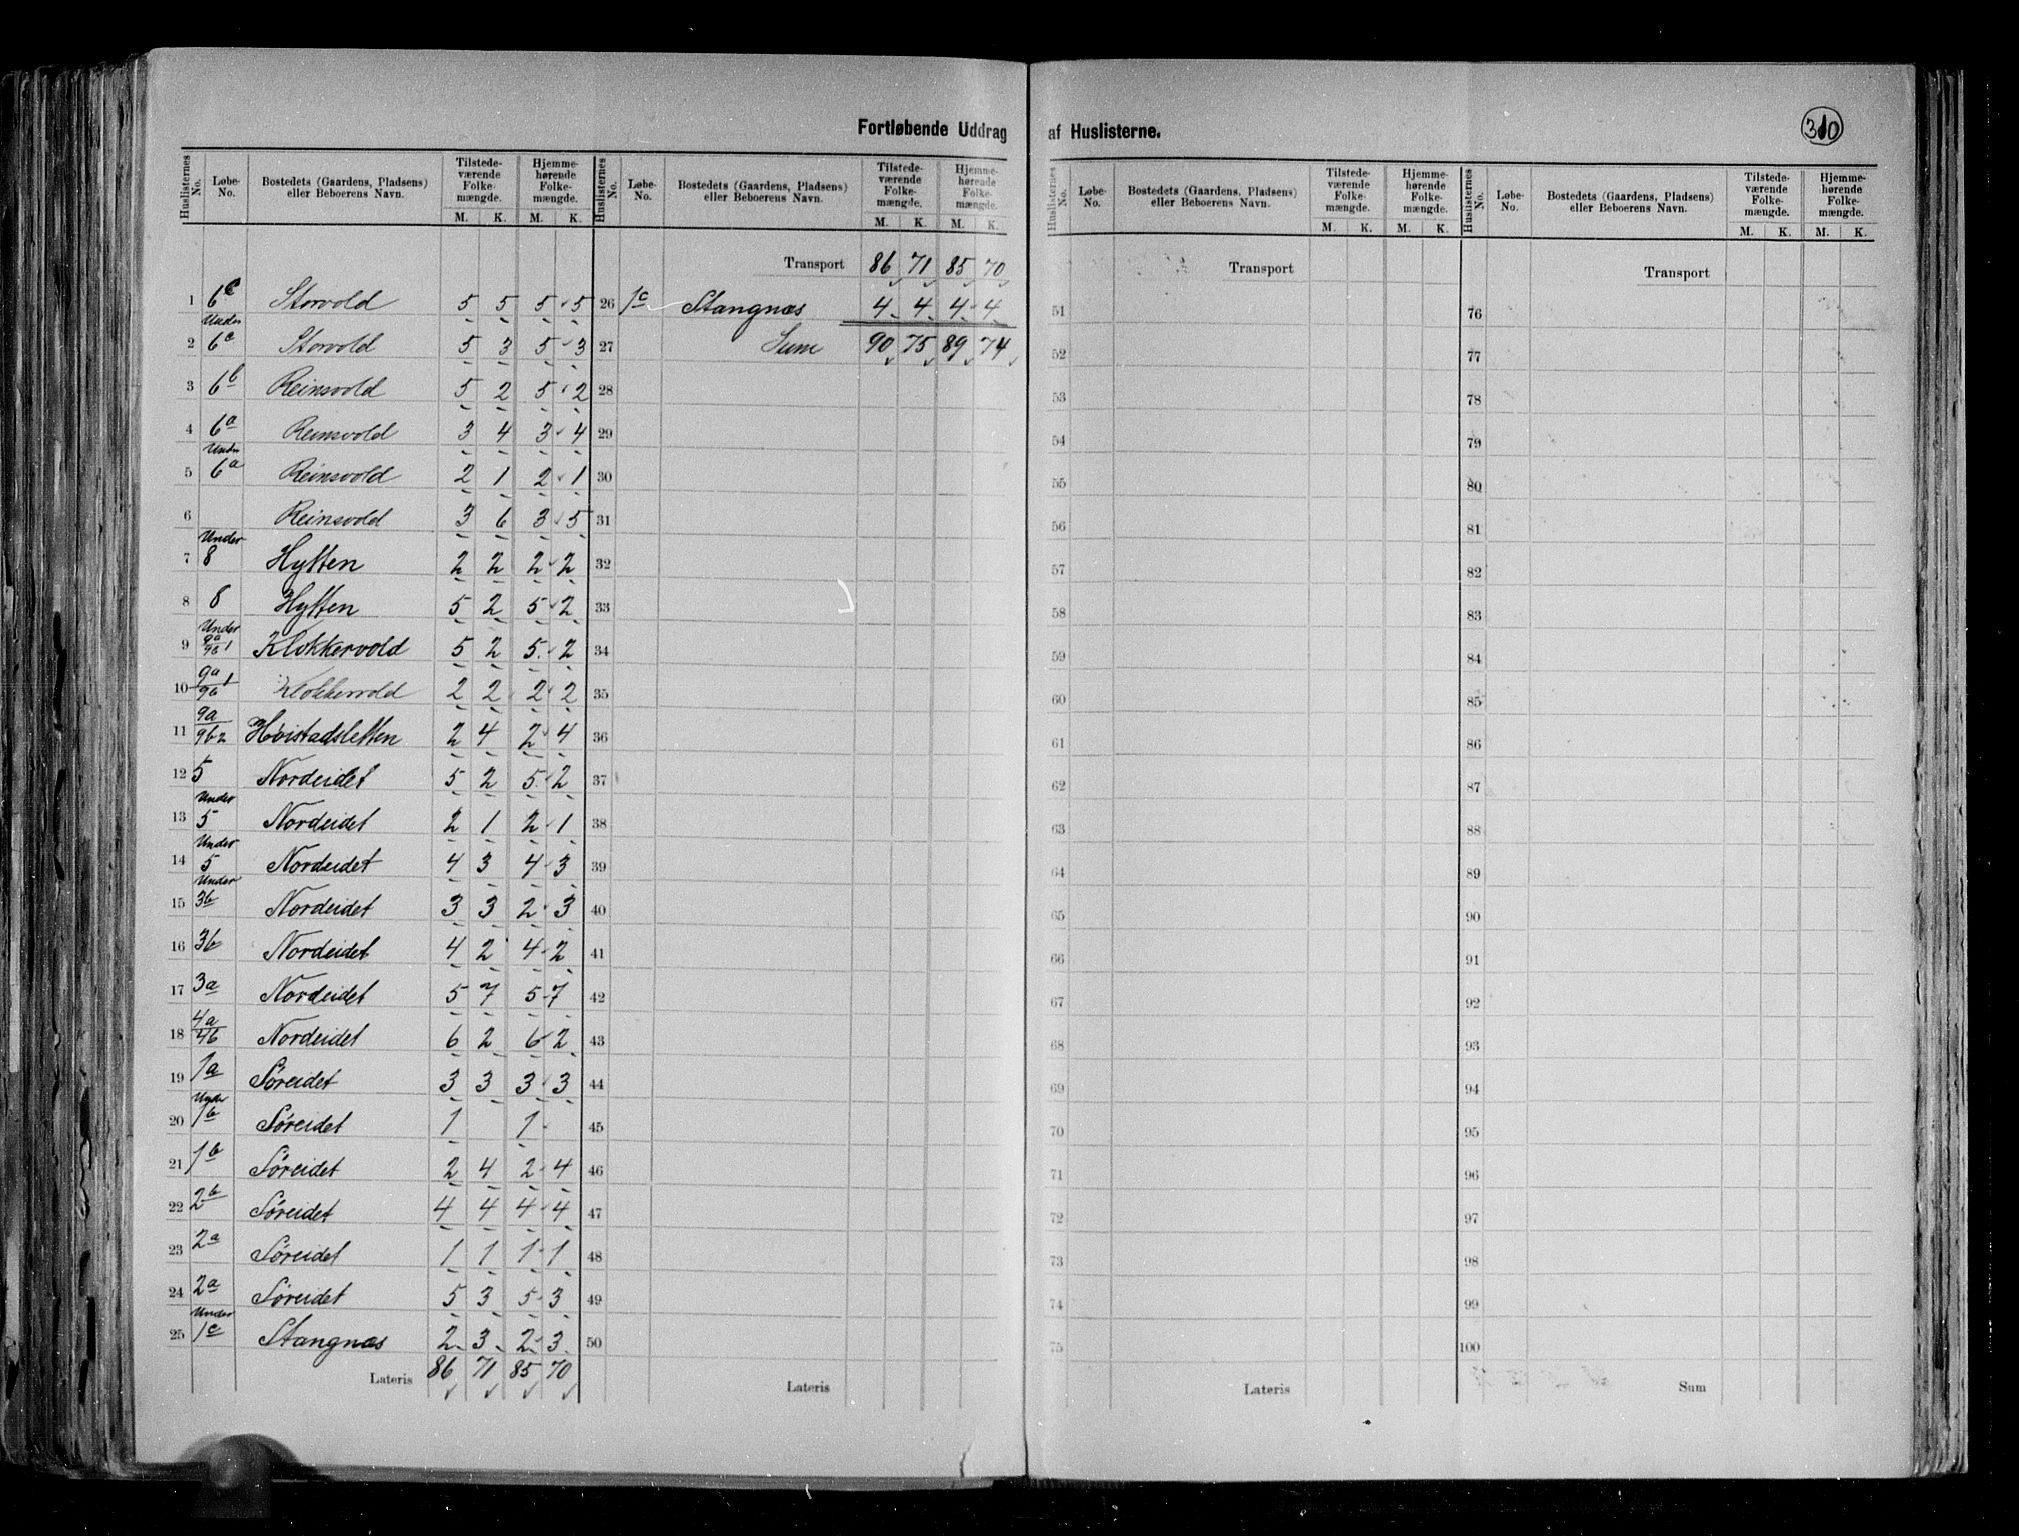 Fortløbende Uddrag af Huslisterne.
310
Huslisternes No. Løbe-No. Bostedets (Gaardens, Pladsens) eller Beboerens Navn. Tilstedeværende Folkemængde. M. K. Hjemmehørende Folkemængde. M. K.
1 6c Storvold 5 5 5 5
2 Under 6c Storvold 5 3 5 3
3 6b Reinsvold 5 2 5 2
4 6a Reinsvold 3 4 3 4
5 Under 6a Reinsvold 2 1 2 1
6 Reinsvold 3 6 3 5
7 Under 8 Hytten 2 2 2 2
8 8 Hytten 5 2 5 2
9 Under 9a/9b1 Klokkervold 5 2 5 2
10 9a/9b1 Klokkervold 2 2 2 2
11 9a/9b2 Hovistadsletten 2 4 2 4
12 5 Nordeidet 5 2 5 2
13 Under 5 Nordeidet 2 1 2 1
14 Under 5 Nordeidet 4 3 4 3
15 Under 3b Nordeidet 3 3 2 3
16 3b Nordeidet 4 2 4 2
17 3a Nordeidet 5 7 5 7
18 4a/4b Nordeidet 6 2 6 2
19 1a Søreidet 3 3 3 3
20 Under 1b Søreidet 1 1
21 1b Søreidet 2 4 2 4
22 2b Søreidet 4 4 4 4
23 2a Søreidet 1 1 1 1
24 2a Søreidet 5 3 5 3
25 Under 1c Stangnæs 2 3 2 3
Lateris 86 71 85 70
Huslisternes No. Løbe-No. Bostedets (Gaardens, Pladsens) eller Beboerens Navn. Tilstedeværende Folkemængde. M. K. Hjemmehørende Folkemængde. M. K.
Transport 86 71 85 70
26 1c Stangnæs 4 4 4 4
27 Sum 90 75 89 74
28
29
30
31
32
33
34
35
36
37
38
39
40
41
42
43
44
45
46
47
48
49
50
Lateris
Huslisternes No. Løbe-No. Bostedets (Gaardens, Pladsens) eller Beboerens Navn. Tilstedeværende Folkemængde. M. K. Hjemmehørende Folkemængde. M. K.
Transport
51
52
53
54
55
56
57
58
59
60
61
62
63
64
65
66
67
68
69
70
71
72
73
74
75
Lateris
Huslisternes No. Løbe-No. Bostedets (Gaardens, Pladsens) eller Beboerens Navn. Tilstedeværende Folkemængde. M. K. Hjemmehørende Folkemængde. M. K.
Transport
76
77
78
79
80
81
82
83
84
85
86
87
88
89
90
91
92
93
94
95
96
97
98
99
100
Sum